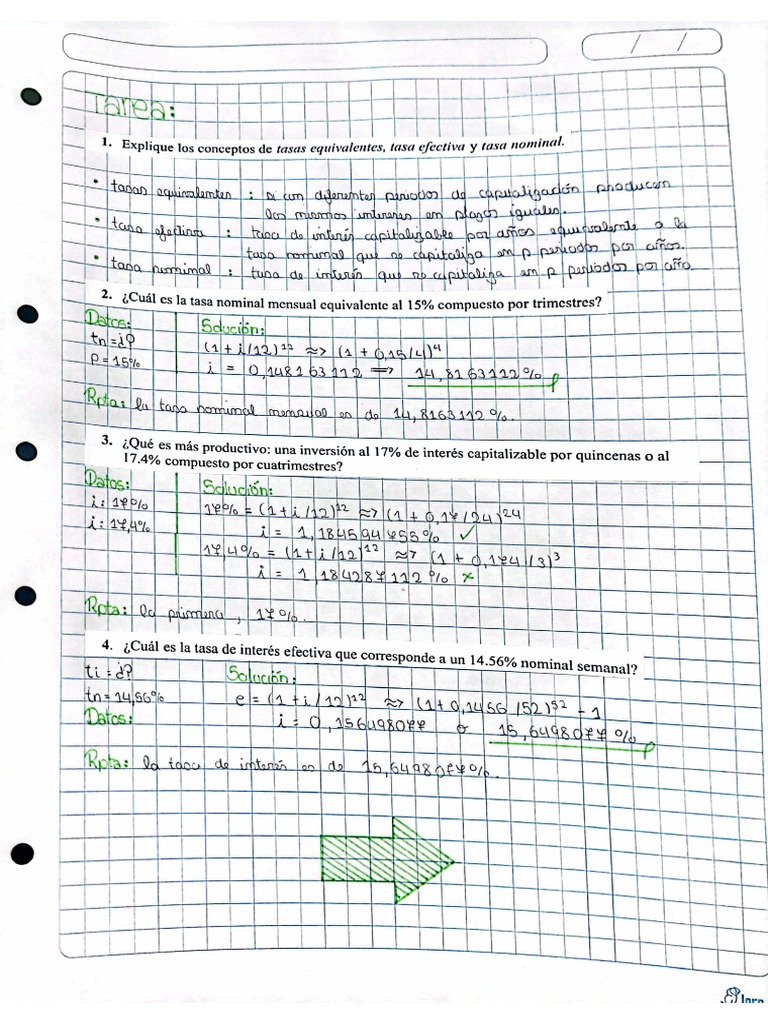 / /
Tarea:
1. Explique los conceptos de tasas equivalentes, tasa efectiva y tasa nominal.
• tasas equivalentes : si con diferentes periodos de capitalización producen
los mismos intereses en plazos iguales.
• tasa efectiva : tasa de interés capitalizable por años equivalente a la
tasa nominal que se capitaliza en p periodos por años.
• tasa nominal : tasa de interés que se capitaliza en p periodos por año.
2. ¿Cuál es la tasa nominal mensual equivalente al 15% compuesto por trimestres?
Datos:
tn = ¿?
P = 15%
Solución:
(1 + i/12)¹² ≈> (1 + 0,15/4)⁴
i = 0,148163112 => 14,8163112%
Rpta: la tasa nominal mensual es de 14,8163112%.
3. ¿Qué es más productivo: una inversión al 17% de interés capitalizable por quincenas o al
17.4% compuesto por cuatrimestres?
Datos:
i: 17%
i: 17,4%
Solución:
17% = (1+i/12)¹² ≈> (1 + 0,17/24)²⁴
i = 1,184594755% ✓
17,4% = (1+i/12)¹² ≈> (1 + 0,174/3)³
i = 1,184287112% x
Rpta: la primera, 17%.
4. ¿Cuál es la tasa de interés efectiva que corresponde a un 14.56% nominal semanal?
ti = ¿?
tn = 14,56%
Datos:
Solución:
e = (1+i/12)¹² ≈> (1+0,1456/52)⁵² - 1
i = 0,156498077 o 15,6498077%
Rpta: la tasa de interés es de 15,6498077%.